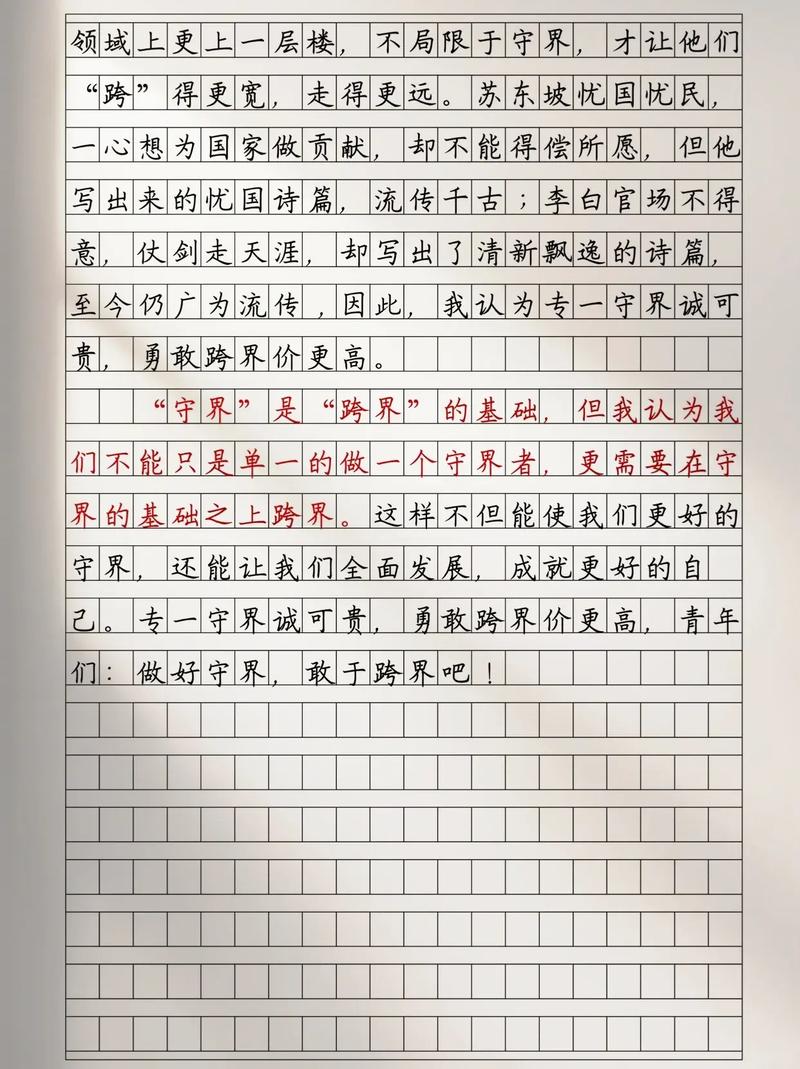 领域上更上一层楼，不局限于守界，才让他们
“跨”得更宽，走得更远。苏东坡忧国忧民，
一心想为国家做贡献，却不能得偿所愿，但他
写出来的忧国诗篇，流传千古；李白官场不得
意，仗剑走天涯，却写出了清新飘逸的诗篇，
至今仍广为流传，因此，我认为专一守界诚可
贵，勇敢跨界价更高。
“守界”是“跨界”的基础，但我认为我
们不能只是单一的做一个守界者，更需要在守
界的基础之上跨界。这样不但能使我们更好的
守界，还能让我们全面发展，成就更好的自
己。专一守界诚可贵，勇敢跨界价更高，青年
们：做好守界，敢于跨界吧！